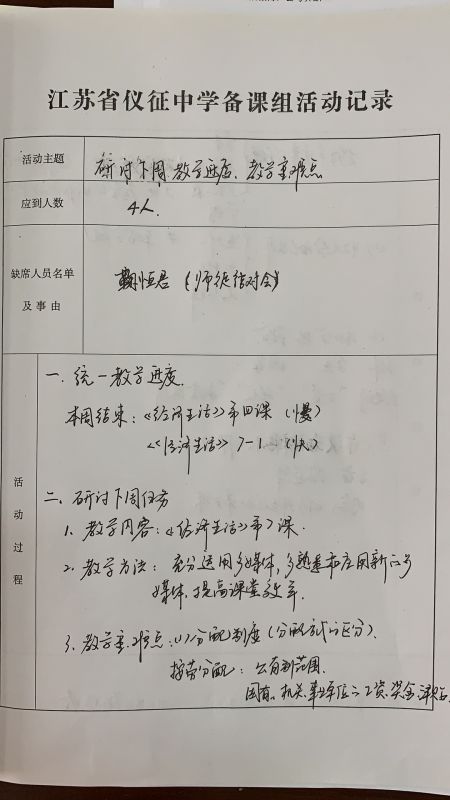 江苏省仪征中学备课组活动记录
活动主题
研讨下周教学进度、教学重难点
应到人数
4人.
缺席人员名单
及事由
恒君 (师徒结对会)
活动过程
一. 统一教学进度.
本周结束：《经济生活》第四课 (慢)
《经济生活》7-1 (快)
二. 研讨下周任务
1. 教学内容：《经济生活》第7课.
2. 教学方法：充分运用多媒体, 多熟悉应用新的多
媒体, 提高课堂效率.
3. 教学重难点：(1)分配制度 (分配方式的区分).
按劳分配：公有制范围.
国有、机关、事业单位的工资、奖金、津贴